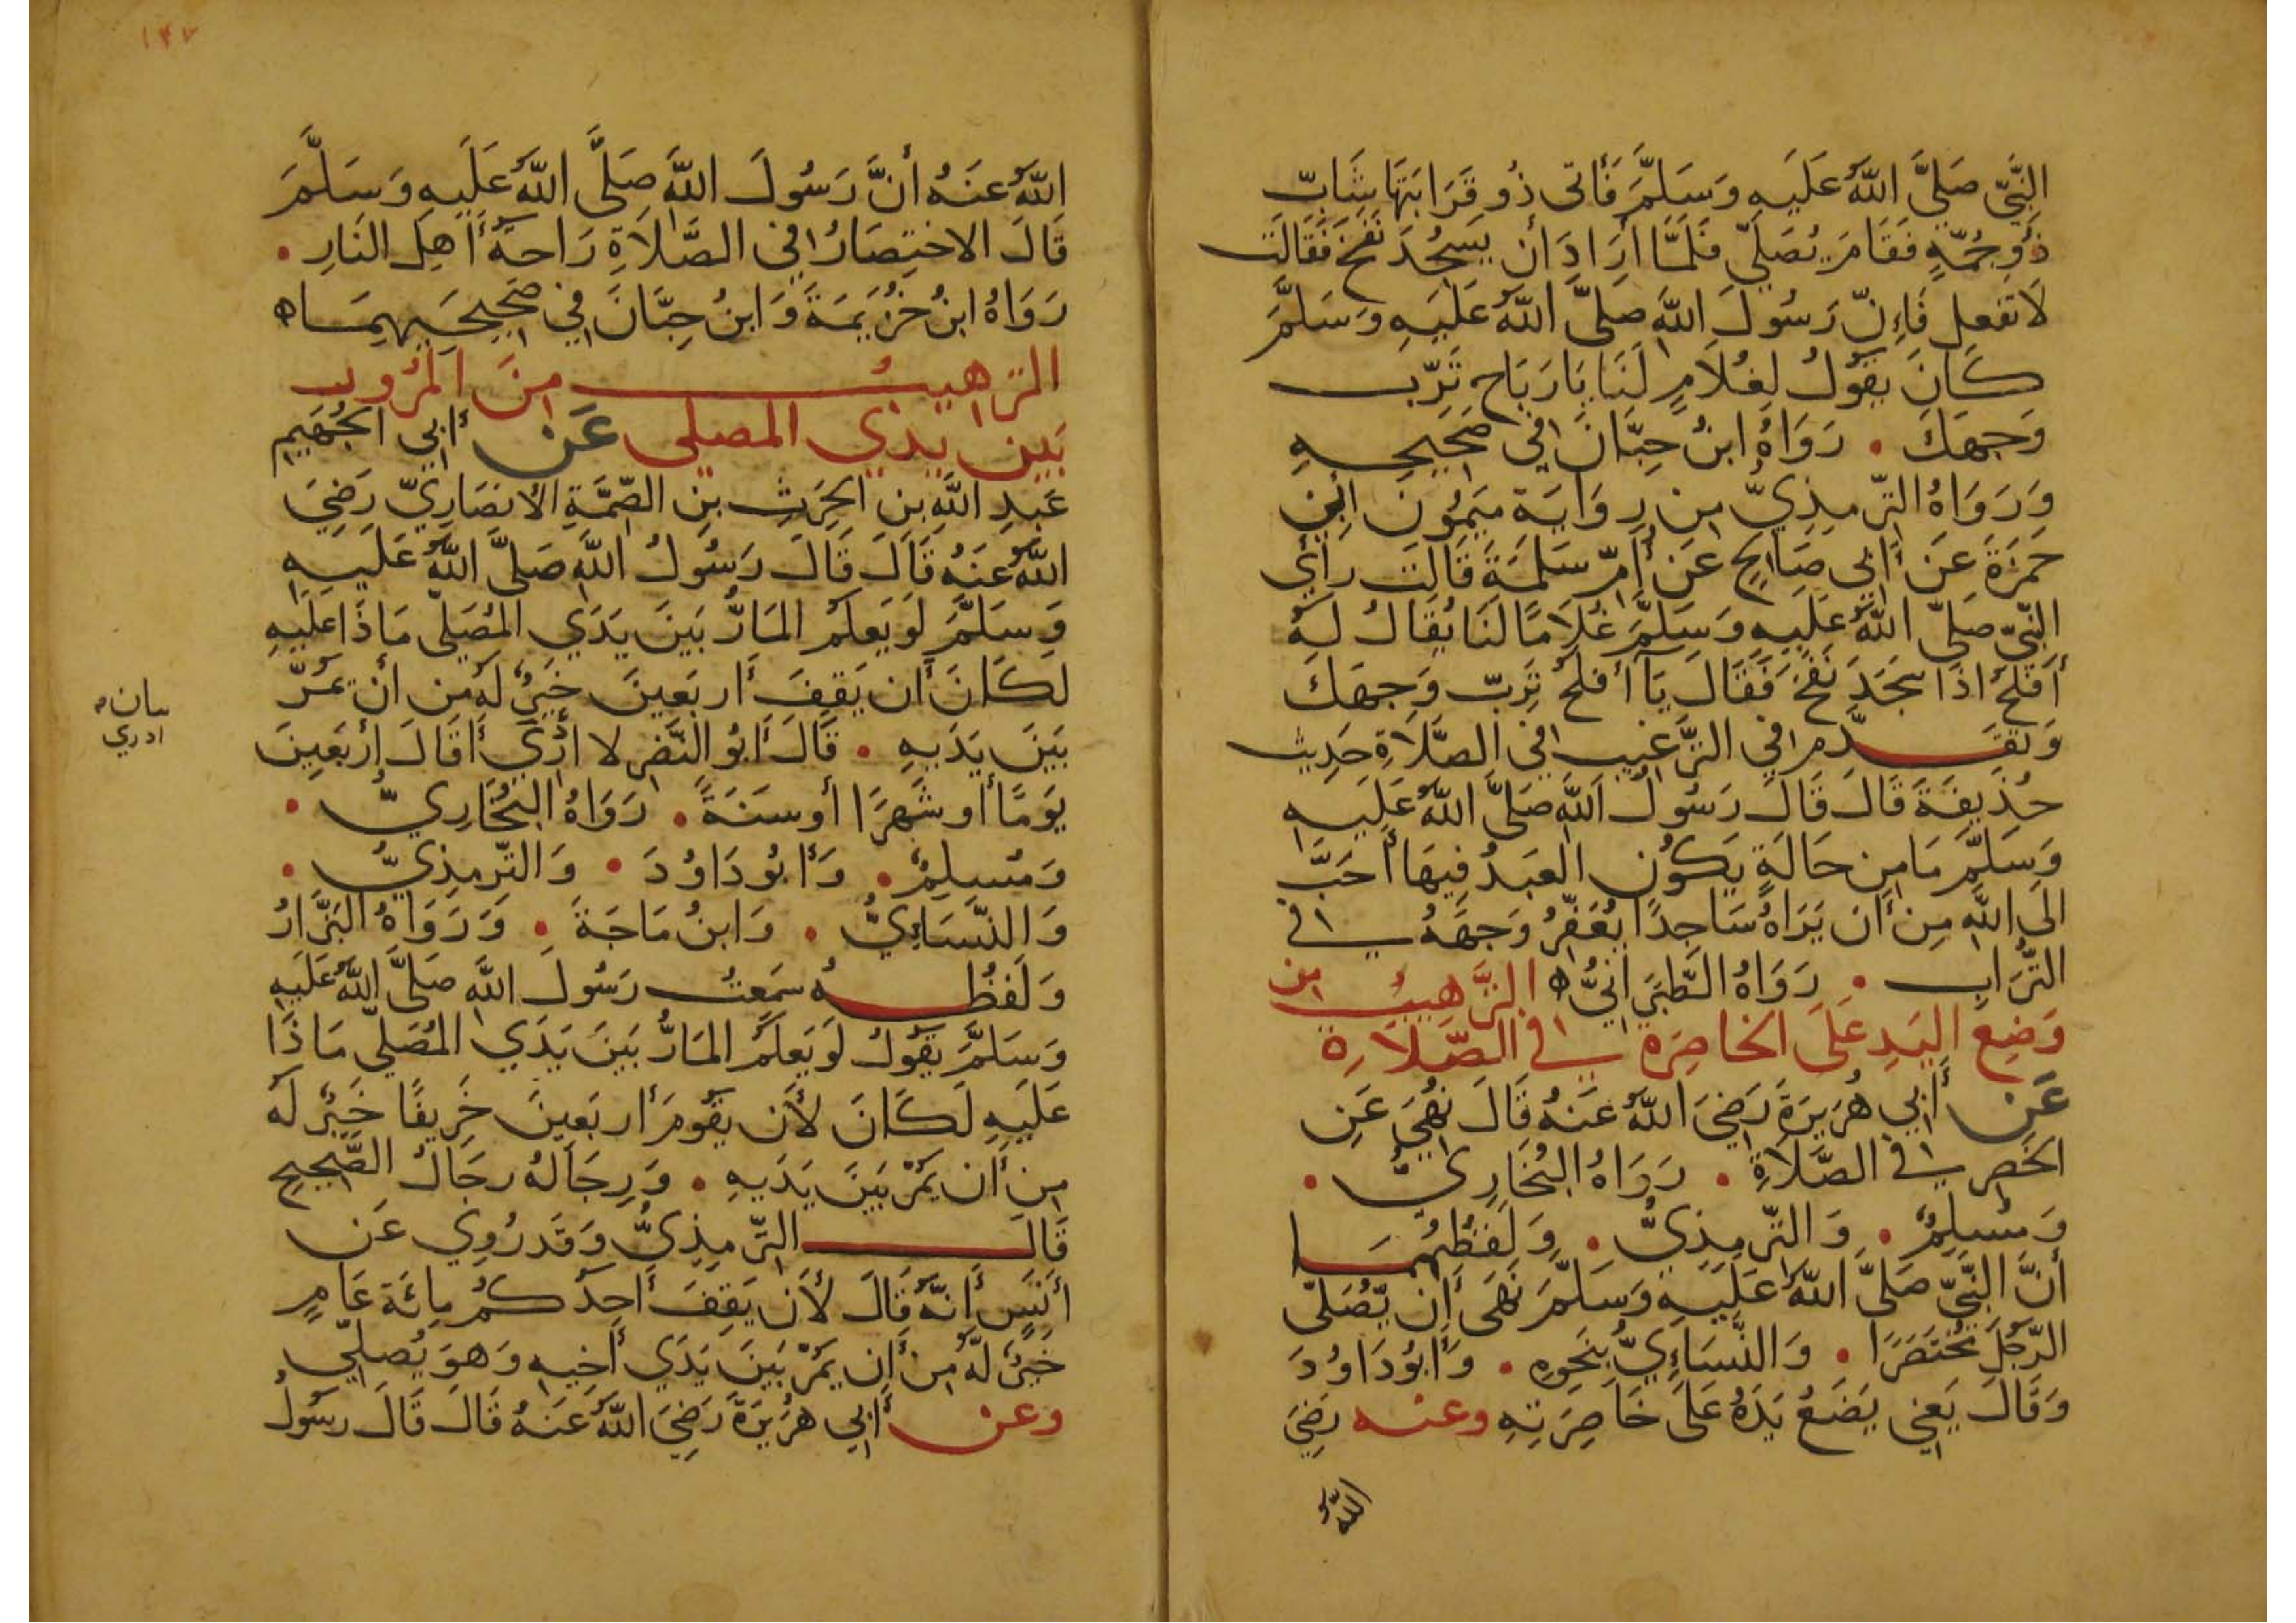 النَّبِيِّ صَلَّى اللَّهُ عَلَيهِ وَسَلَّمَ فَأَتى ذُو قَرَابَتِهَا شَابّ
ذُو جُمَّةٍ فَقَامَ يُصَلِّي فَلَمَّا أَرَادَ أَن يَسجُدَ نَفَخَ فَقَالَت
لَا تَفعَل فَإِنّ رَسُولَ اللَّهِ صَلَّى اللَّهُ عَلَيهِ وَسَلَّمَ
كَانَ يَقُولُ لِغُلَامٍ لَنَا يَا رَبَاح تَرّب
وَجهَكَ . رَوَاهُ ابنُ حِبَّانَ فِي صَحِيحِهِ
وَرَوَاهُ التِّرمِذِيُّ مِن رِوَايَة مَيمُون أَبِي
حَمزَةَ عَن أَبِي صَالِحٍ عَن أُمِّ سَلَمَةَ قَالَت رأي
النَّبِيّ صَلَّى اللَّهُ عَلَيهِ وَسَلَّمَ غُلَامًا لَنَا يُقَالُ لَهُ
أَفلَحُ اذَا سَجَدَ نَفَخَ فَقَالَ يَا أَفلَحُ تَرِّب وَجهَكَ
وَتَقَدّم فِي التَّرغِيب فِي الصَّلَاةِ حَدِيث
حُذَيفَةَ قَالَ قَالَ رَسُولُ اللَّهِ صَلَّى اللَّهُ عَلَيهِ
وَسَلَّمَ مَا مِن حَالَةٍ يَكُون العَبدُ فِيهَا أَحَبَّ
الَى اللَّهِ مِن أَن يَرَاهُ سَاجِدًا يُعَفِّرُ وَجهَهُ فِي
التُّرَابِ . رَوَاهُ الطَّبَرَانِيُّ ه التَّرهِيبُ مِن
وَضعِ اليَدِ عَلَى الخَاصِرَة فِي الصَّلَاةِ
عَن أَبِي هُرَيرَةَ رَضِيَ اللَّهُ عَنهُ قَالَ نُهِيَ عَنِ
الخَصرِ فِي الصَّلَاةِ . رَوَاهُ البُخَارِيُّ .
وَمُسلِمٌ . وَالتِّرمِذِيُّ . وَلَفظُهُمَا
أَنَّ النَّبِيَّ صَلَّى اللَّهُ عَلَيهِ وَسَلَّمَ نَهَى أَن يُصَلِّي
الرَّجُلُ مُختَصَرًا . وَالنَّسَائِيُّ بِنَحوِهِ . وَأَبُو دَاوُدَ
وَقَالَ يَعنِي يَضَعُ يَدَهُ عَلَى خَاصِرَتِهِ وعنه رَضِيَ
اللَّهُ
١٤٧
اللَّهُ عَنهُ أَنَّ رَسُولَ اللَّهِ صَلَّى اللَّهُ عَلَيهِ وَسَلَّمَ
قَالَ الاختِصَارُ فِي الصَّلَاةِ رَاحَةُ أَهلِ النَّارِ .
رَوَاهُ ابنُ خُزَيمَةَ وَابنُ حِبَّانَ فِي صَحِيحَيهِمَا ه
الترهيبُ مِنَ المُرُورِ
بَين يَدَي المصلى عَن أَبِي الجُهَيمِ
عَبدِ اللَّهِ بنِ الحرِثِ بنِ الصِّمَّةِ الأَنصَارِيِّ رَضِيَ
اللَّهُ عَنهُ قَالَ قَالَ رَسُولُ اللَّهِ صَلَّى اللَّهُ عَلَيهِ
وَسَلَّمَ لَو يَعلَمُ المَارُّ بَينَ يَدَي المُصَلِّي مَاذَا عَلَيهِ
لَكَانَ أَن يَقِفَ أَربَعِينَ خَيرٌ لَهُ مِن أَن يَمُرَّ
بَينَ يَدَيهِ . قَالَ أَبُو النَّضرِ لا أَدرِي أَقَالَ أَربَعِينَ
بيان
ادري
يَومًا أَو شَهرًا أَو سَنَةً . رَوَاهُ البُخَارِيُّ .
وَمُسلِمٌ . وَأَبُو دَاوُدَ . وَالتِّرمِذِيُّ .
وَالنَّسَائِيُّ . وَابنُ مَاجَةَ . وَرَوَاهُ البَزَّارُ
وَلَفظُهُ سَمِعتُ رَسُولَ اللَّهِ صَلَّى اللَّهُ عَلَيهِ
وَسَلَّمَ يَقُولُ لَو يَعلَمُ المَارُّ بَينَ يَدَي المُصَلِّي مَاذَا
عَلَيهِ لَكَانَ لَأَن يَقُومَ أَربَعِينَ خَرِيفًا خَيرٌ لَهُ
مِن أَن يَمُرّ بَينَ يَدَيهِ . وَرِجَالُهُ رِجَالُ الصَّحِيحِ
قَالَ التِّرمِذِيُّ وَقَد رُوِي عَن
أَنَسٍ أَنَّهُ قَالَ لَأَن يَقِفَ أَحَدُكُم مِائَةَ عَامٍ
خَيرٌ لَهُ مِن أَن يَمُرّ بَينَ يَدَي أَخِيهِ وَهوَ يُصَلِّي
وعن أَبِي هُرَيرَةَ رَضِيَ اللَّهُ عَنهُ قَالَ قَالَ رَسُولُ